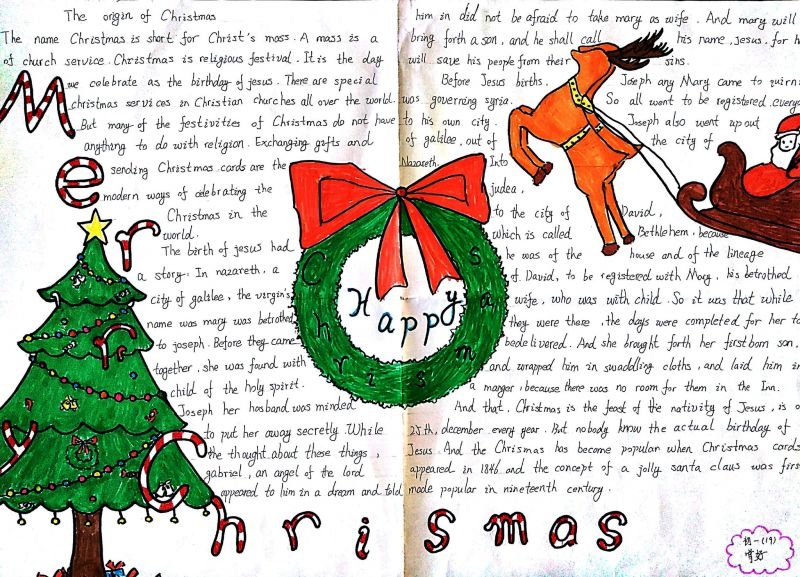 The origin of Christmas
The name Christmas is short for Christ's mass. A mass is a
of church service. Christmas is religious festival. It is the day
we celebrate as the birthday of jesus. There are special
christmas services in Christian churches all over the world.
But many of the festivities of Christmas do not have
anything to do with religion. Exchanging gifts and
sending Christmas cards are the
modern ways of celebrating the
Christmas in the
world.
The birth of jesus had
a story. In nazareth, a
city of galilee, the virgin's
name was mary was betrothed
to joseph. Before they came
together, she was found with
child of the holy spirit.
Joseph her hosband was minded
to put her away secretly. While
he thought about these things,
gabriel, an angel of the lord
appeared to him in a dream and told
him in did not be afraid to take mary as wife. And mary will
bring forth a son, and he shall call his name, jesus, for h
will save his people from their sins.
Before Jesus births, Joseph any Mary came to quirni
was governing syria. So all went to be registered. everyo
to his own city. Joseph also went up out
of galilee, out of the city of
Nazareth. Into
judea,
to the city of David,
which is called Bethlehem, because
he was of the house and of the lineage
of David, to be registered with Mary, his betrothed
wife, who was with child. So it was that while
they were there, the days were completed for her to
bedelivered. And she brought forth her first born son,
and wrapped him in swaddling cloths, and laid him in
a manger, because there was no room for them in the Inn.
And that. Christmas is the feast of the nativity of Jesus, is o
25th, december every year. But nobody know the actual birthday of
Jesus. And the Chrismas has become popular when Christmas cards
appeared in 1846 and the concept of a jolly santa claus was firs
made popular in nineteenth century.
Merry
Christmas
Happy
Chrismas
初一(19)